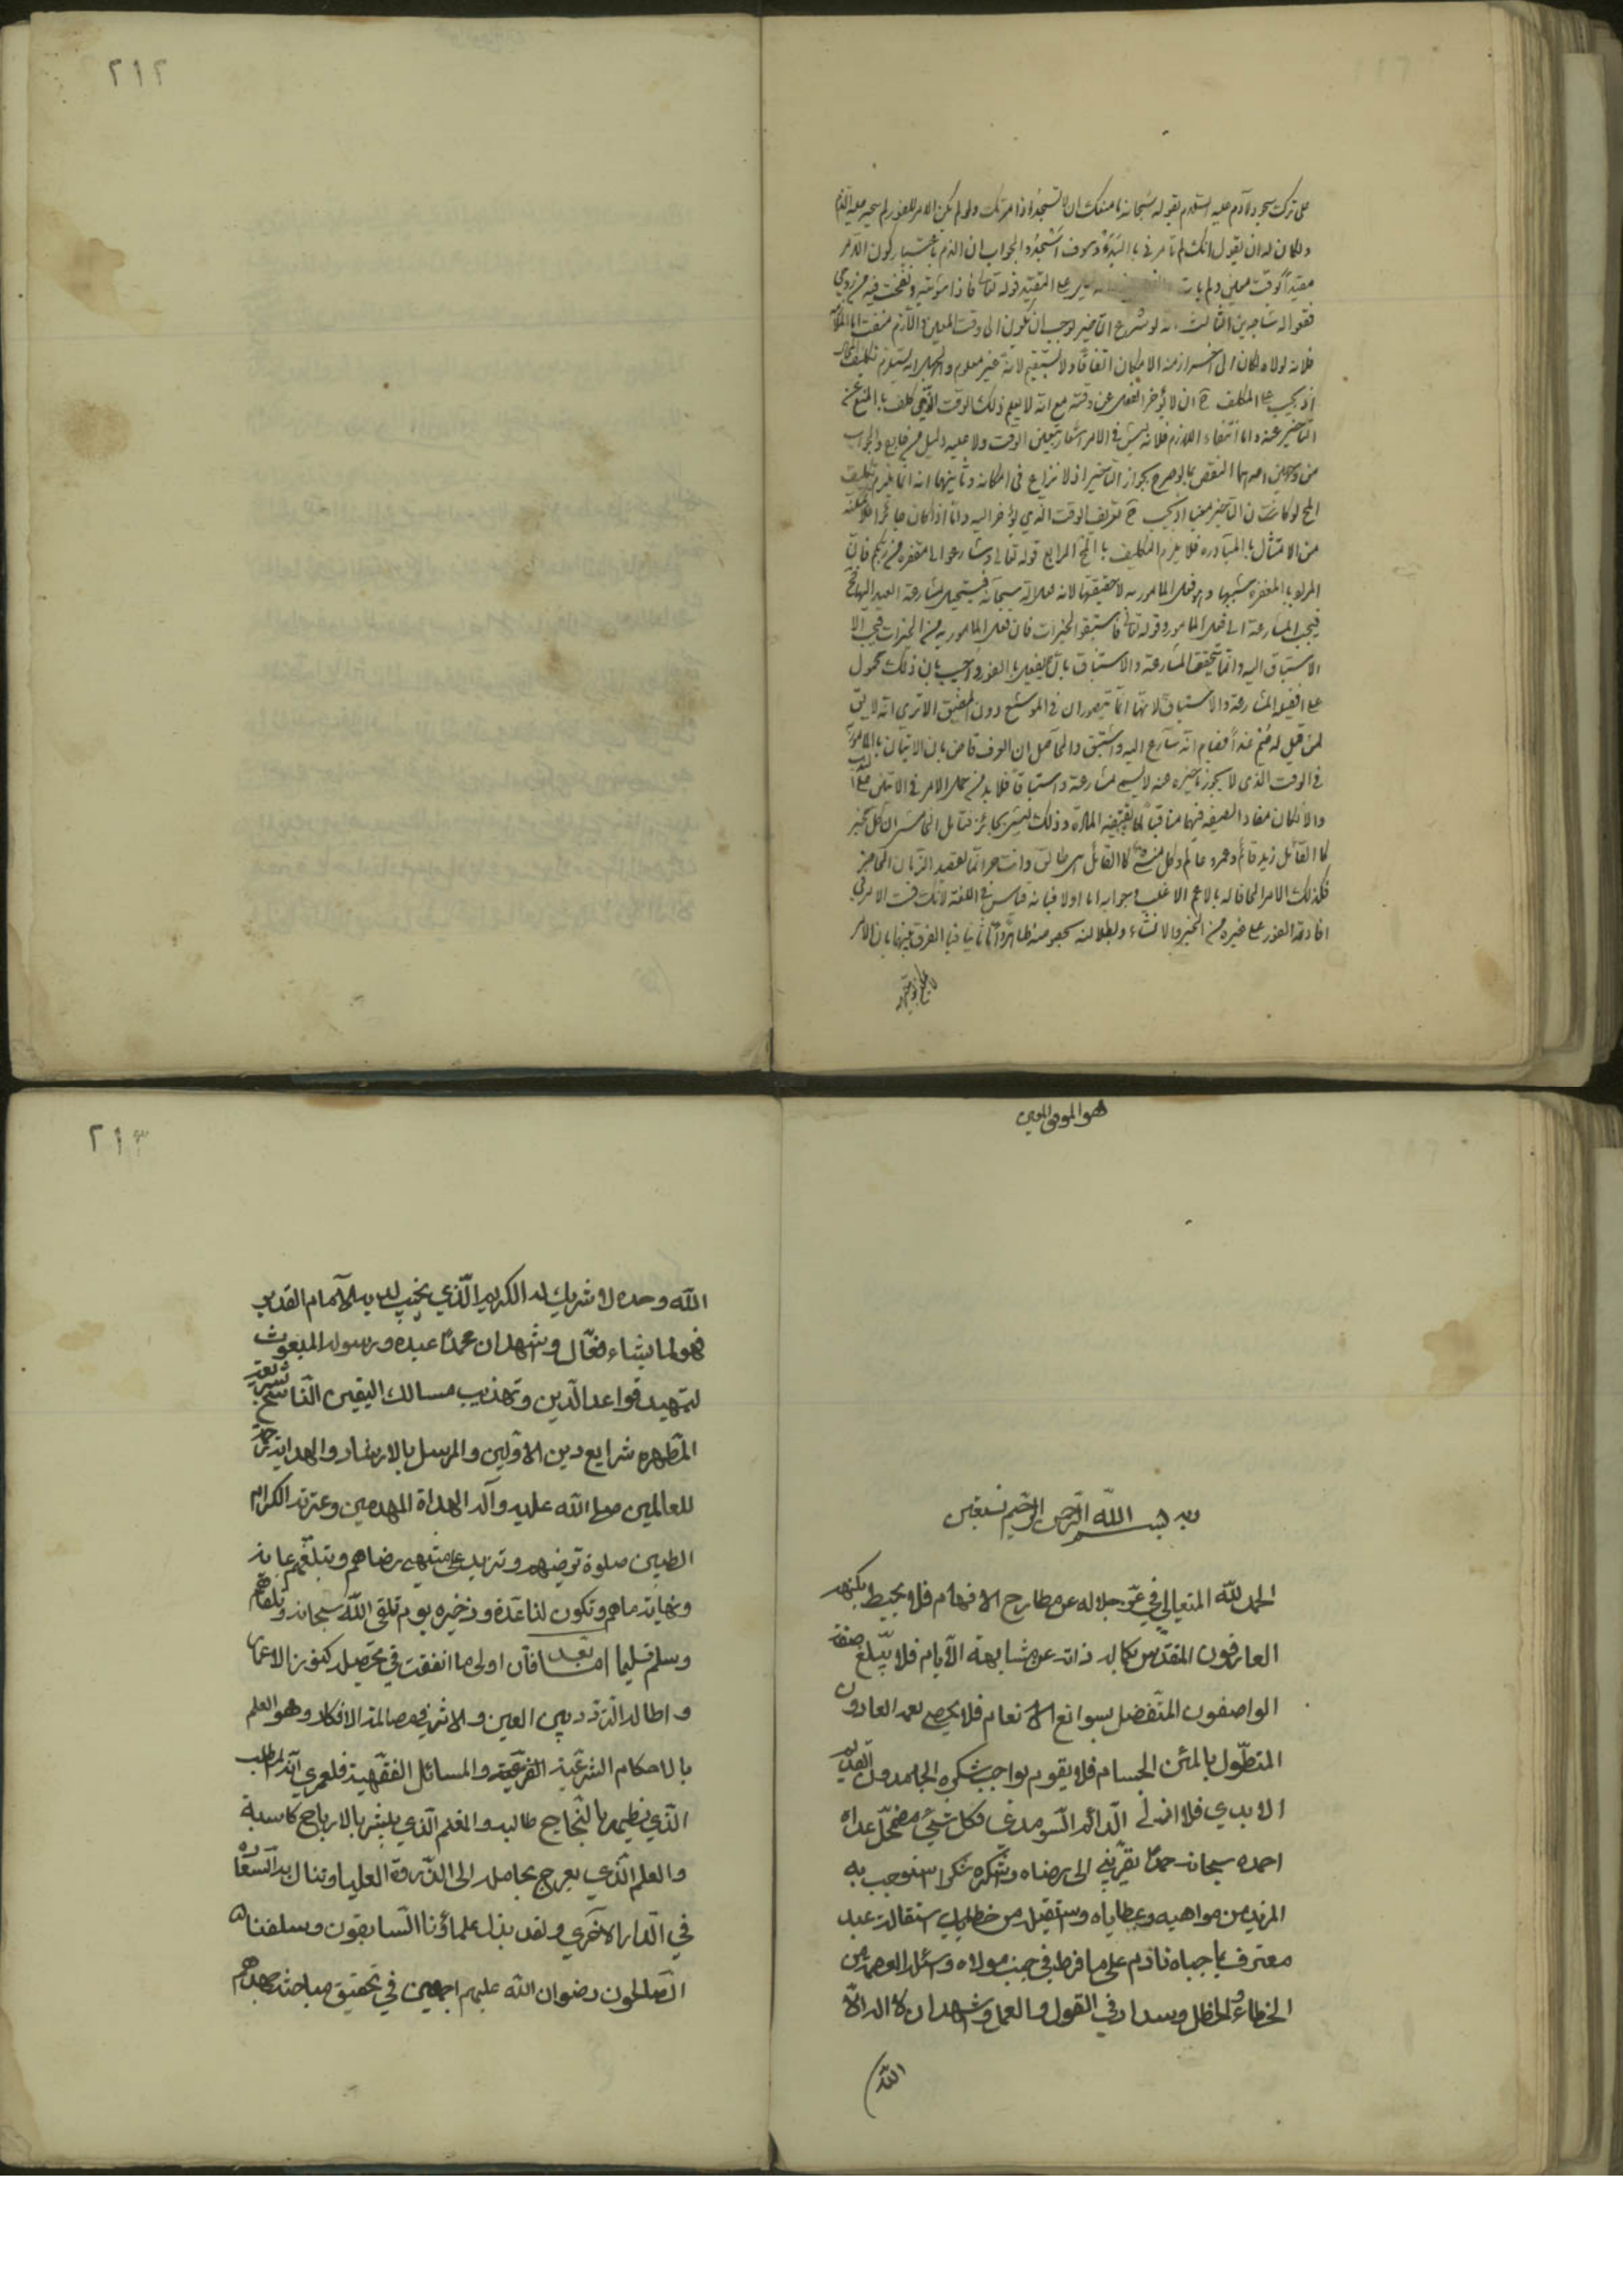 ٢١٢
على ترك سجود لآدم عليه السلام بقوله سبحانه ما منعك ان لا تسجد اذ امرتك ولو لم يكن الامر للفور لم يتوجه عليه الذم
ولكان له ان يقول انك لم تأمرني بالبدار وسوف اسجد والجواب ان الذم باعتبار كون الامر
مقيدا بوقت معين ولم يأت على التقييد قوله تعالى فاذا سويته ونفخت فيه من روحي
فقعوا له ساجدين الثالث انه لو شرع التأخير لوجب ان يكون الى وقت معين واللازم منتف اما الملازمة
فلانه لولاه لكان الى آخر ازمنة الامكان اتفاقا ولا يستقيم لانه غير معلوم والجهل به يستلزم تكليف المحال
اذ يجب على المكلف ح ان لا يؤخر الفعل عن وقته مع انه لا يعلم ذلك الوقت الذي كلف بالمنع عن
التأخير عنه واما انتفاء اللازم فلانه ليس في الامر اشعار بتعيين الوقت ولا عليه دليل من خارج والجواب
من وجهين احدهما النقض بما لو صرح بجواز التأخير اذ لا نزاع في امكانه وثانيهما انه انما يلزم تكليف
المحال لو كان التأخير متعينا اذ يجب ح تعريف الوقت الذي يؤخر اليه واما اذا كان جائزا فلا لتمكنه
من الامتثال بالمبادرة فلا يلزم التكليف بالمحال الرابع قوله تعالى وسارعوا الى مغفرة من ربكم فان
المراد بالمغفرة سببها وهو فعل المأمور به لا حقيقتها لانه فعل الله سبحانه فيستحيل مسارعة العبد اليها ح
فيجب المسارعة الى فعل المأمور وقوله تعالى فاستبقوا الخيرات فان فعل المأمور به من الخيرات فيجب الا
الاستباق اليه وانما يتحقق المسارعة والاستباق بان يفعل بالفور واجيب بان ذلك محمول
على افضلية المسارعة والاستباق لانهما انما يتصوران في الموسع دون المضيق الا ترى انه لا يق
لمن قيل له صم غدا فصام انه سارع اليه واستبق والحاصل ان العرف قاض بان الاتيان بالمأمور به
في الوقت الذي لا يجوز تأخيره عنه لا يسمى مسارعة واستباقا فلا بد من حمل الامر في الآيتين على الندب
والا لكان مفاد الصيغة فيهما منافيا لما تقتضيه المادة وذلك ليس بجائز فتأمل الخامس ان كل مخبر
كالقائل زيد قائم وعمرو عالم وكل منشئ كالقائل هي طالق وانت حر انما يقصد الزمان الحاضر
فكذلك الامر الحاقا له بالاعم الاغلب وجوابه اما اولا فبانه قياس في اللغة لانك قست الامر في
افادته الفور على غيره من الخبر والانشاء وبطلانه بخصوصه ظاهر واما ثانيا فبالفرق بينهما بان الامر
لا يمكن توجيهه
٢١٣
هو الموفق المعين
وبه بسم الله الرحمن الرحيم نستعين
الحمد لله المتعالي في عز جلاله عن مطارح الافهام فلا يحيط بكنهه
العارفون المتقدس بكمال ذاته عن مشابهة الانام فلا يبلغ صفته
الواصفون المتفضل بسوابغ الانعام فلا يحصي نعمه العادون
المتطول بالمنن الجسام فلا يقوم بواجب شكره الحامدون القديم
الابدي فلا ازلي الدائم السرمدي فكل شئ مضمحل عداه
احمده سبحانه حمدا يقربني الى رضاه واشكره شكرا استوجب به
المزيد من مواهبه وعطاياه واستقيله من خطاياي استقالة عبد
معترف بما جناه نادم على ما فرط في جنب مولاه واسئله العصمة من
الخطاء والخطل وسداد في القول والعمل واشهد ان لا اله الا
الله
الله وحده لا شريك له الكريم الذي يخيب لديه الآمال القدير
فهو لما يشاء فعال واشهد ان محمدا عبده ورسوله المبعوث
لتمهيد قواعد الدين وتهذيب مسالك اليقين الناسخ بشريعته
المطهرة شرايع دين الاولين والمرسل بالارشاد والهداية رحمة
للعالمين صلى الله عليه وآله الهداة المهديين وعترته الكرام
الطيبين صلوة ترضيهم وتزيد على منتهى رضاهم وتبلغهم غاية
ونهاية مناهم وتكون لنا عدة وذخيرة يوم نلقى الله سبحانه ونلقاهم
وسلم تسليما اما بعد فان اولى ما انفقت في تحصيله كنوز الاعمار
واطالت التردد بين العين والاثر في معالمه الافكار وهو العلم
بالاحكام الشرعية الفرعية والمسائل الفقهية فلعمري انه المطلب
الذي يظفر بالنجاح طالبه والمغنم الذي يبشر بالارباح كاسبه
والعلم الذي يعرج بحامله الى الذروة العليا وتنال به السعادة
في الدار الاخرى ولقد بذل علماؤنا السابقون وسلفنا
الصالحون رضوان الله عليهم اجمعين في تحقيق مباحثه جهدهم